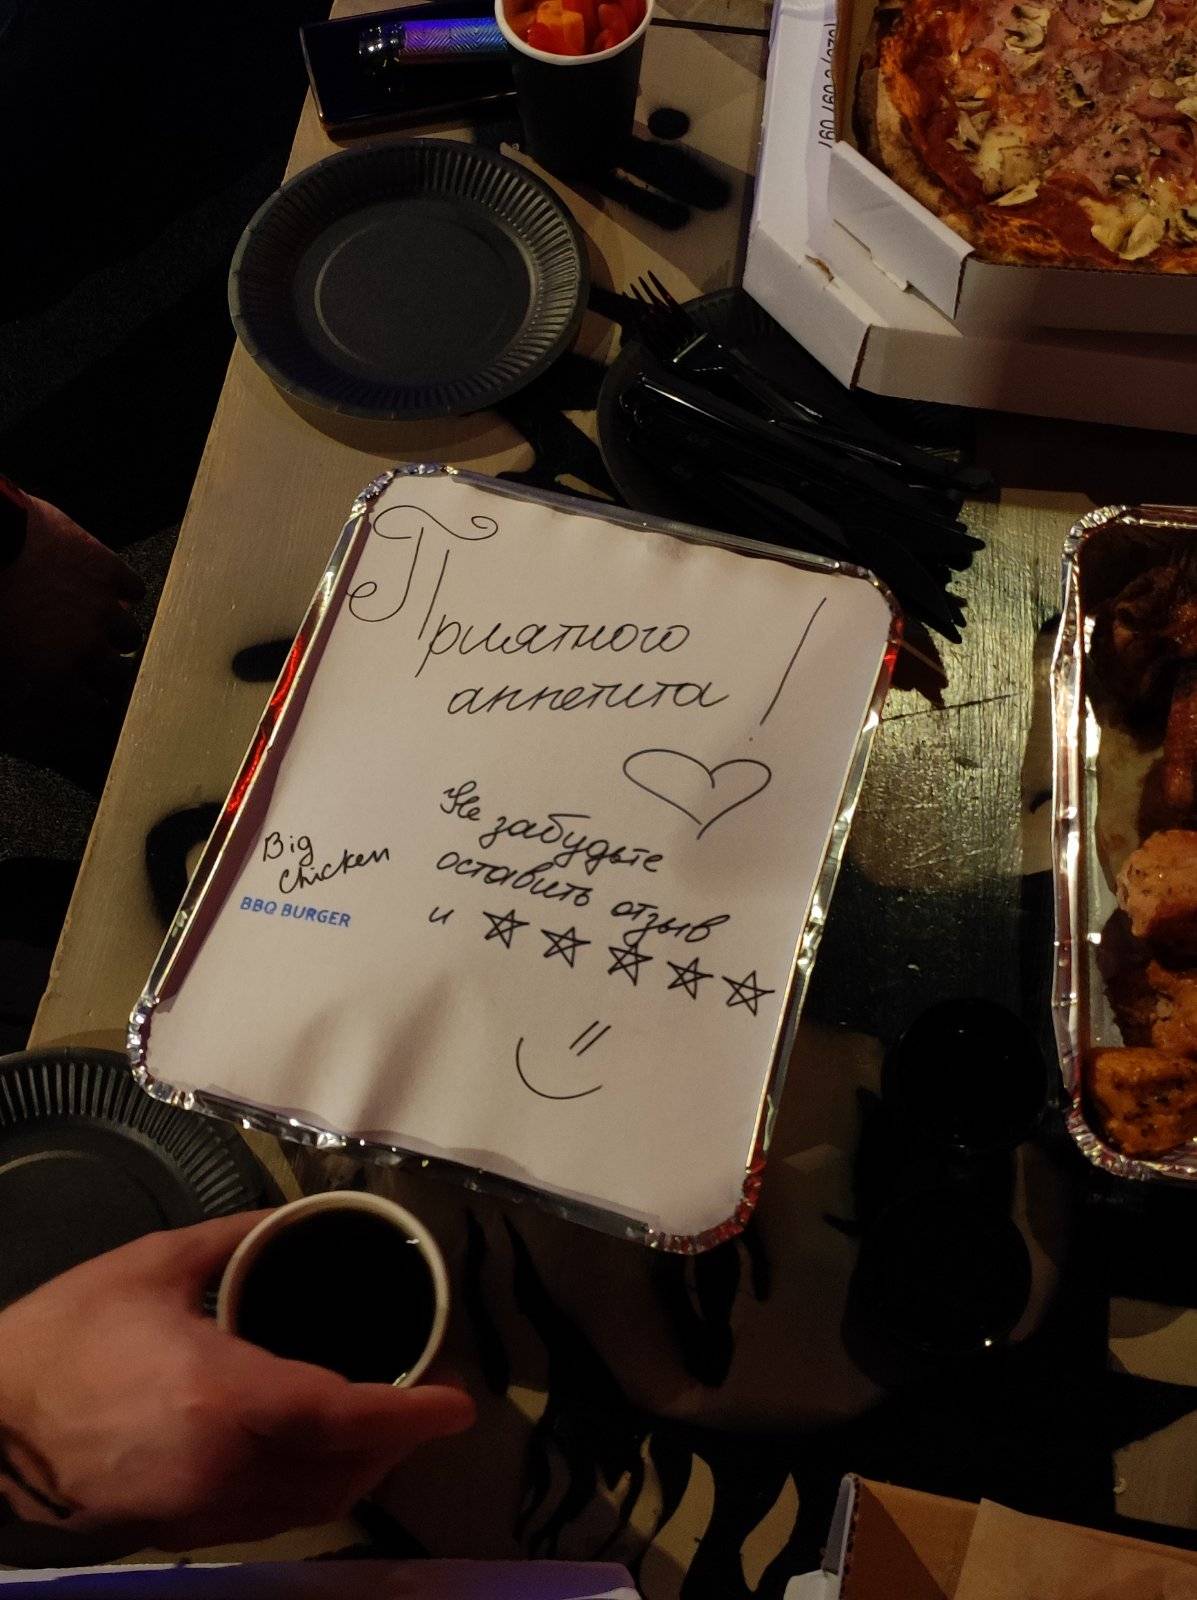 Приятного
аппетита!
Не забудьте
оставить отзыв
и ☆☆☆☆☆
Big
chicken
BBQ BURGER